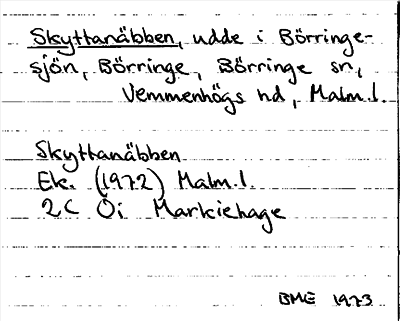 Skyttanäbben, udde i Börringe-
sjön, Börringe, Börringe sn,
Vemmenhögs hd, Malm.l.
Skyttanäbben
Ek. (1972) Malm.l.
2C Öi Markiehage
BME 1973